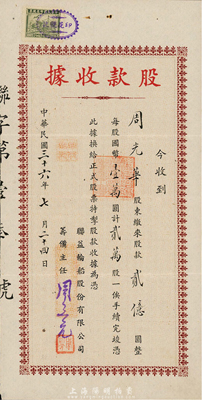 股款收據
今收到
周光華股東繳來股款貳億圓整
每股國幣壹萬圓計貳萬股一俟手續完竣憑
此據換給正式股票特掣股款收據為憑
聯益輪船股份有限公司
籌備主任
中華民國三十六年七月二十四日
聯字第壹奉號